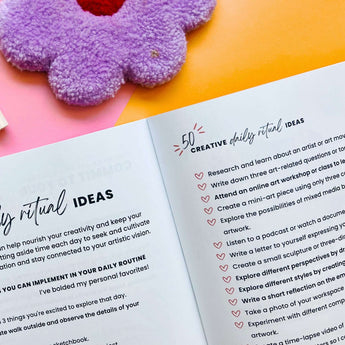 ly ritual IDEAS
n help nourish your creativity and keep your
tting aside time each day to seek and cultivate
ation and stay connected to your artistic vision.
YOU CAN IMPLEMENT IN YOUR DAILY ROUTINE
I've bolded my personal favorites!
3 things you're excited to explore that day.
te walk outside and observe the details of your
sketchbook.
50
CREATIVE daily ritual IDEAS
Research and learn about an artist or art mov
Write down three art-related questions or to
Attend an online art workshop or class to le
Create a mini-art piece using only three c
Explore the possibilities of mixed media b
artwork.
Listen to a podcast or watch a docume
Write a letter to yourself expressing yo
Create a small sculpture or three-d
Explore different perspectives by d
Explore different styles by creating
Write a short reflection on the em
Take a photo of your workspace
Experiment with different comp
artwork.
te a time-lapse video of